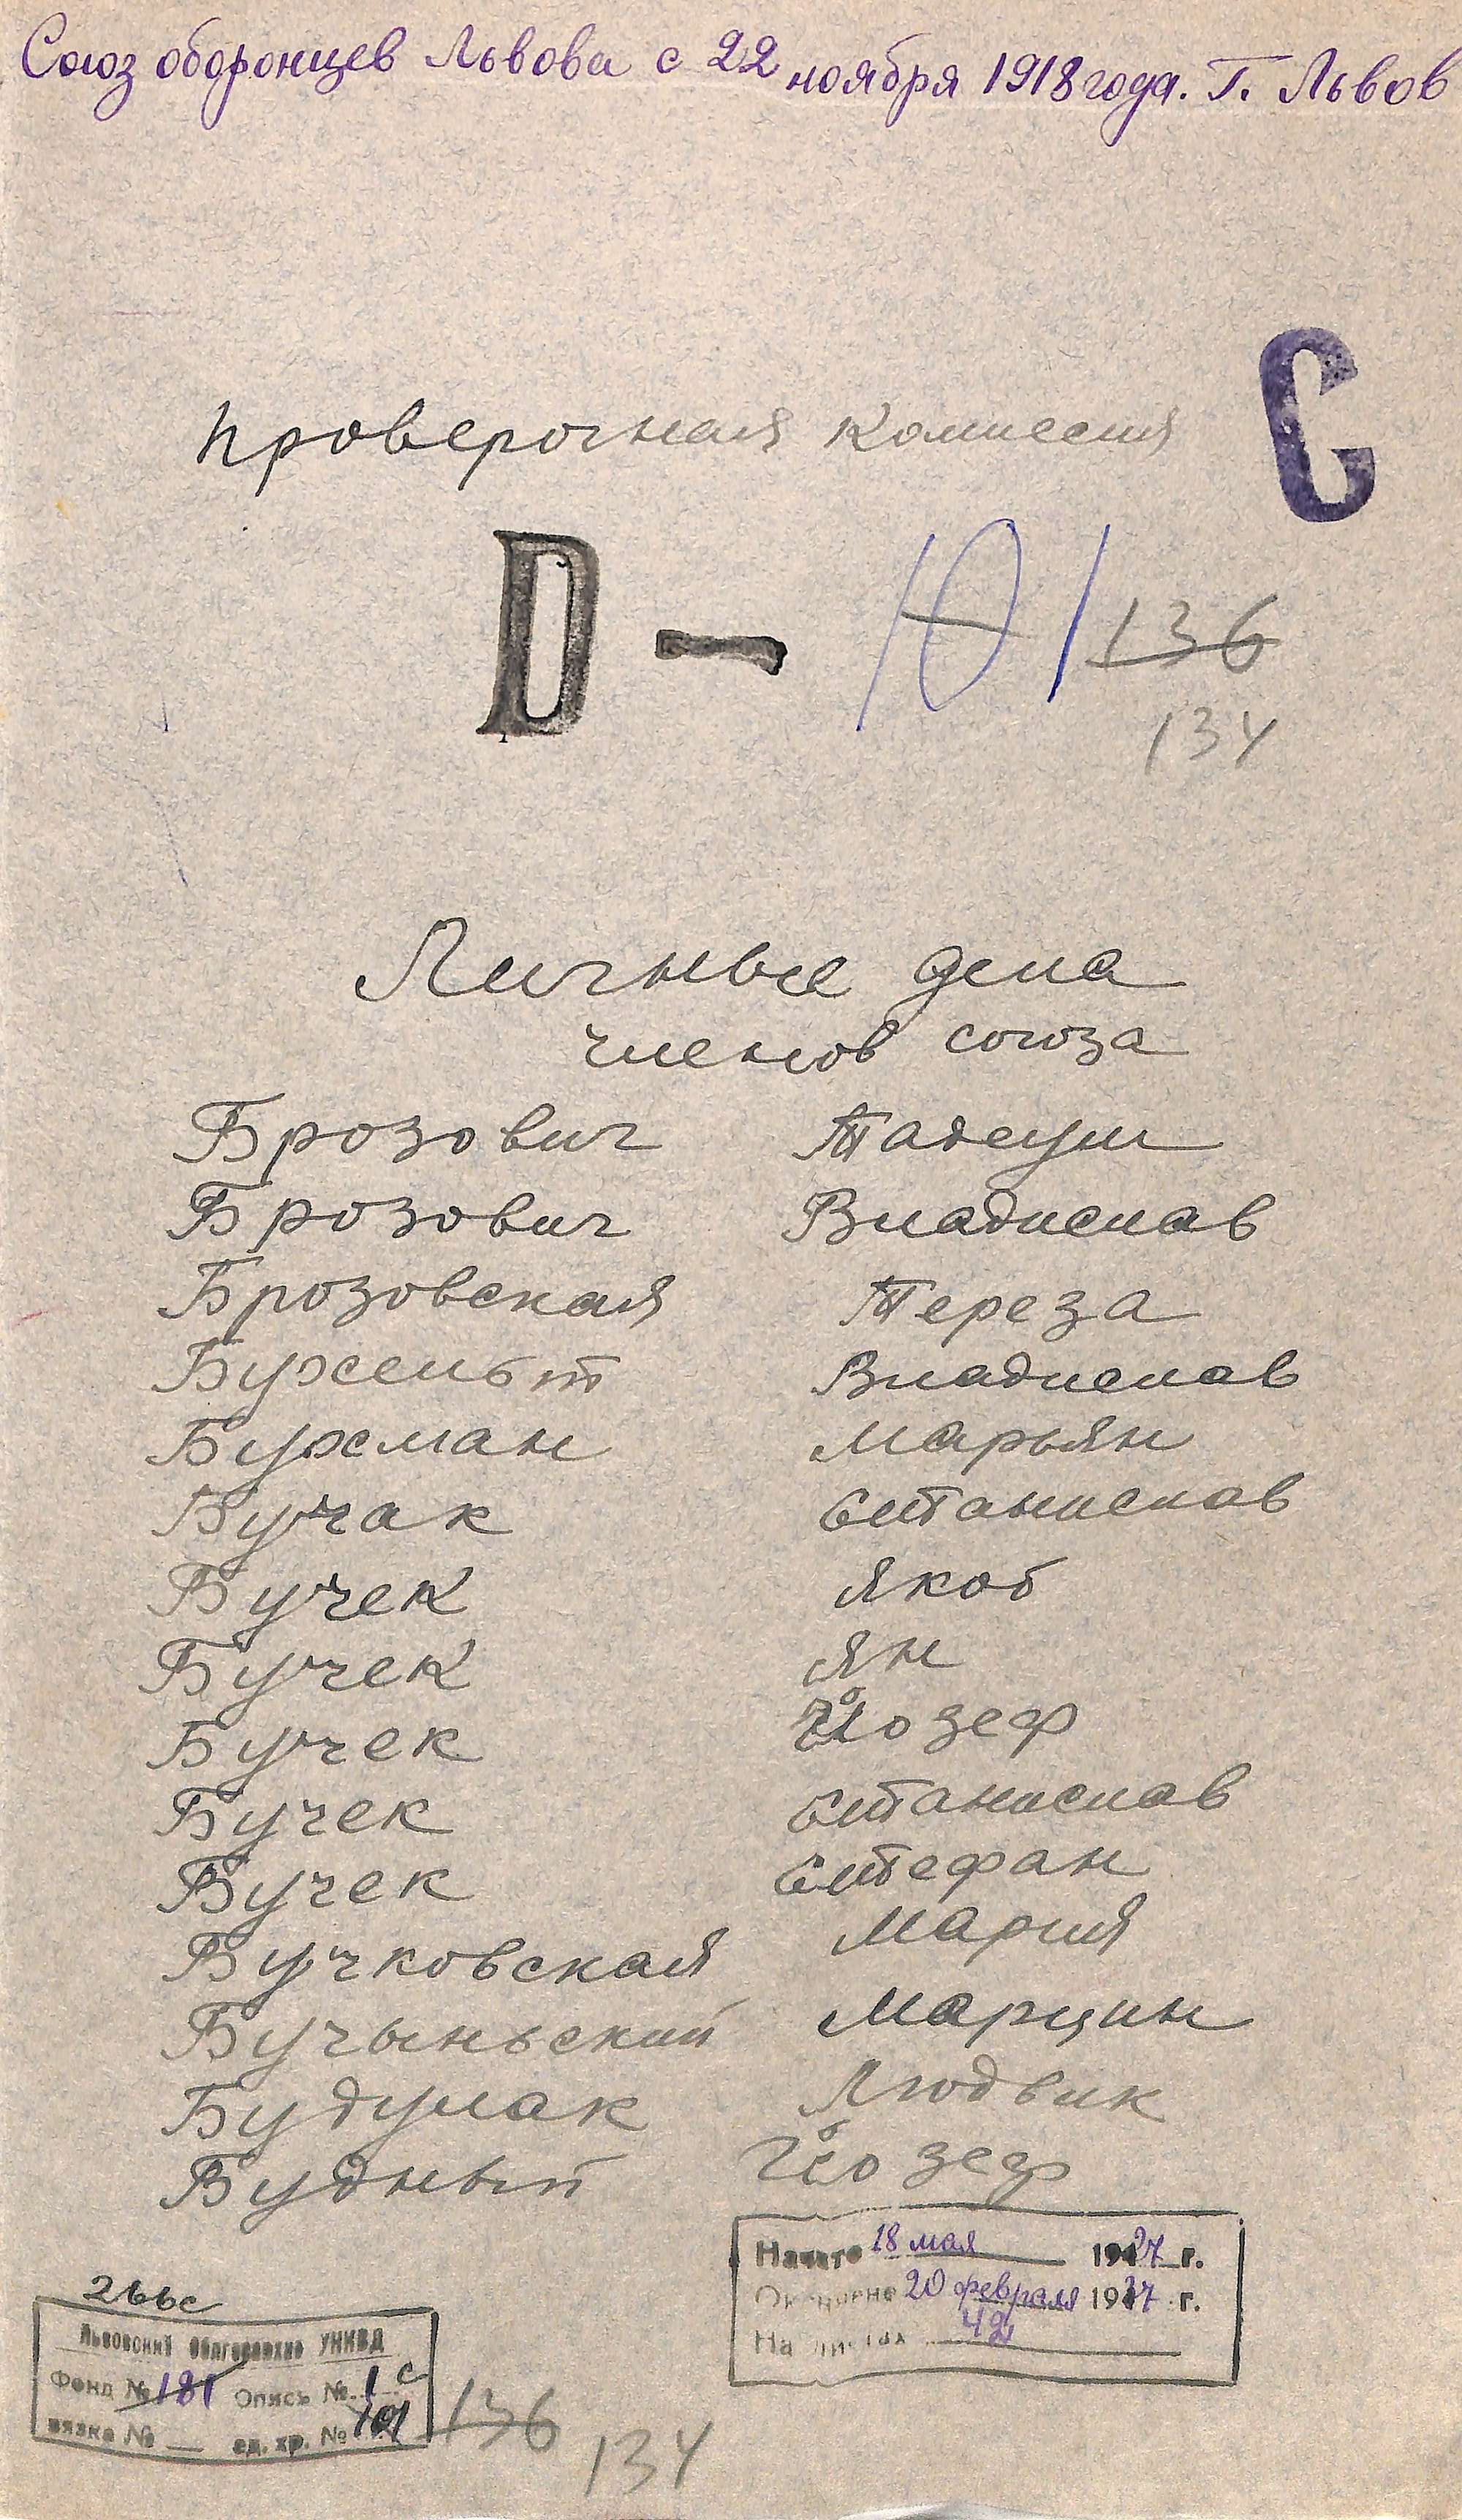 Союз оборонцев Львова с 22 ноября 1918 года. Г. Львов
С
Проверочная комиссия
D — 101 136
134
Личные дела
членов союза
Брозович Тадеуш
Брозович Владислав
Брозовская Тереза
Бухсельт Владислав
Бухсман Марьян
Бучак Станислав
Бучек Якоб
Бучек Ян
Бучек Йозеф
Бучек Станислав
Бучек Стефан
Бучковская Мария
Бучыньский Марцин
Будулак Людвик
Будный Йозеф
Начато 18 мая 1927 г.
Окончено 20 февраля 1937 г.
На листах 42
266с
Львовский Облгосархив УНКВД
Фонд № 181 Опись № 1с
вязка № — ед. хр. № 101 136 134